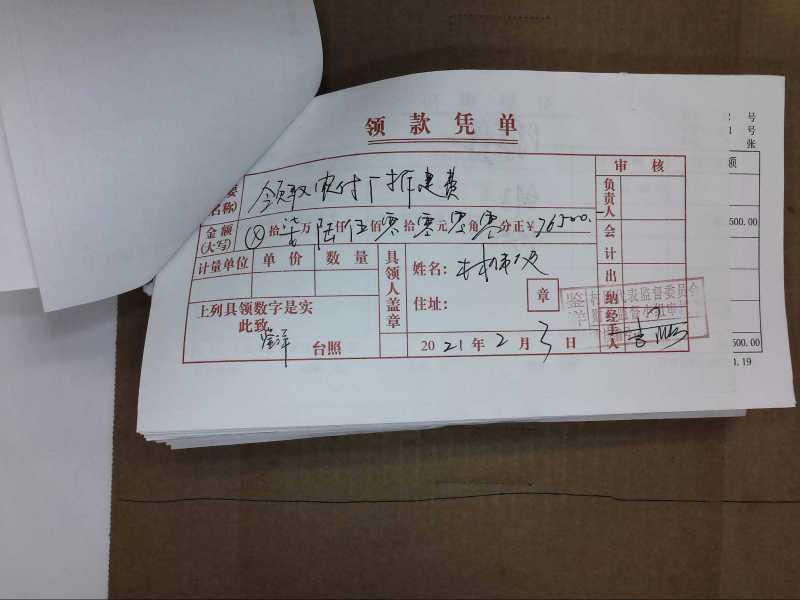 领款凭单
要 领取 付厂 建费
名称)
审核
负责人
金额(大写) ⊗拾柒万陆仟伍佰零拾零元零角零分正¥76500.
会计
计量单位 单价 数量
具领人盖章
姓名:
住址:
章
出纳
经手人
上列具领数字是实
此致
鉴洋 台照
2021年2月3日
鉴洋村 代表监督委员会
号
号
张
额
500.00
500.00
.19